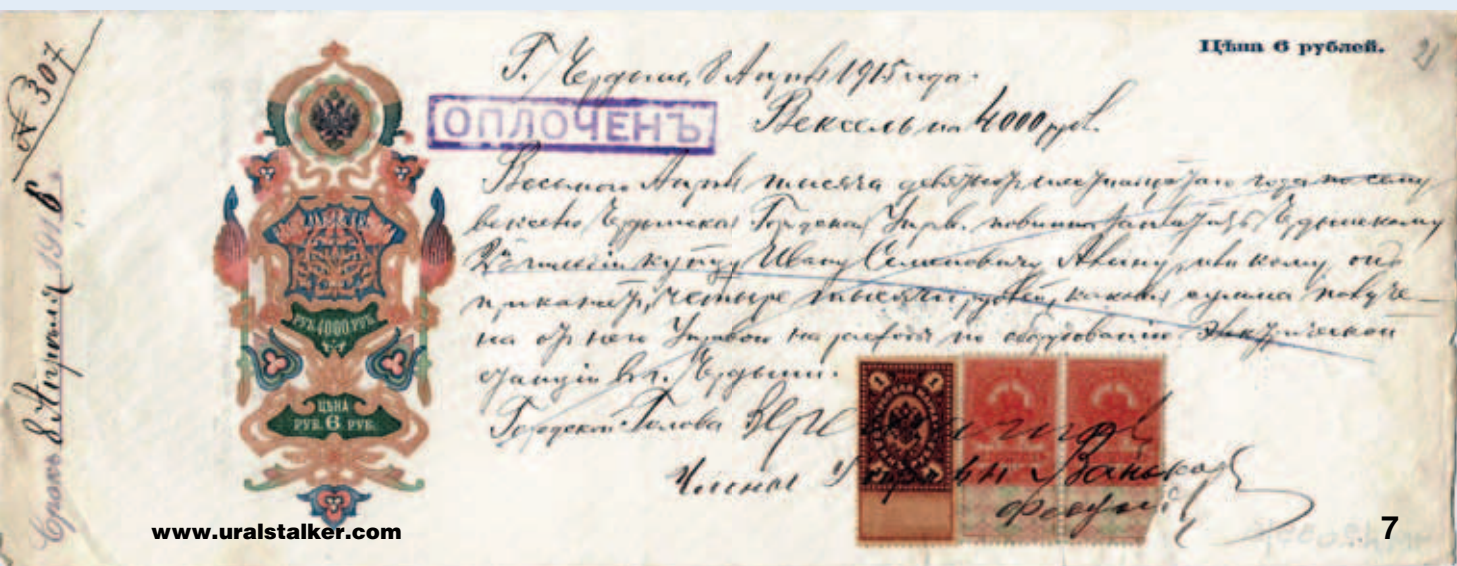 Цѣна 6 рублей.
21
№ 307
Срокъ 8 Апрѣля 1916
Г. Чердынь, 8 Апрѣля 1915 года.
ОПЛОЧЕНЪ
Вексель на 4000 руб.
Восьмого Апрѣля тысяча девятьсот шестнадцатаго года по сему
векселю Чердынская Городская Управ. повинна заплатить Чердынскому
2й гильдіи купцу Ивану Семеновичу Алину, или кому онъ
прикажетъ, четыре тысячи рублей, каковая сумма получе-
на от него Управою на работы по оборудованію электрической
станціи в г. Чердыни.
РУБ. 4000 РУБ.
ЦѢНА
РУБ. 6 РУБ.
Городской Голова
Члены Управы
1
1
1
www.uralstalker.com
7